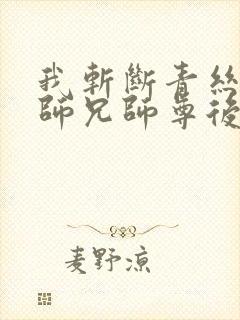 我斬斷青絲
師兄師尊後
麦野涼